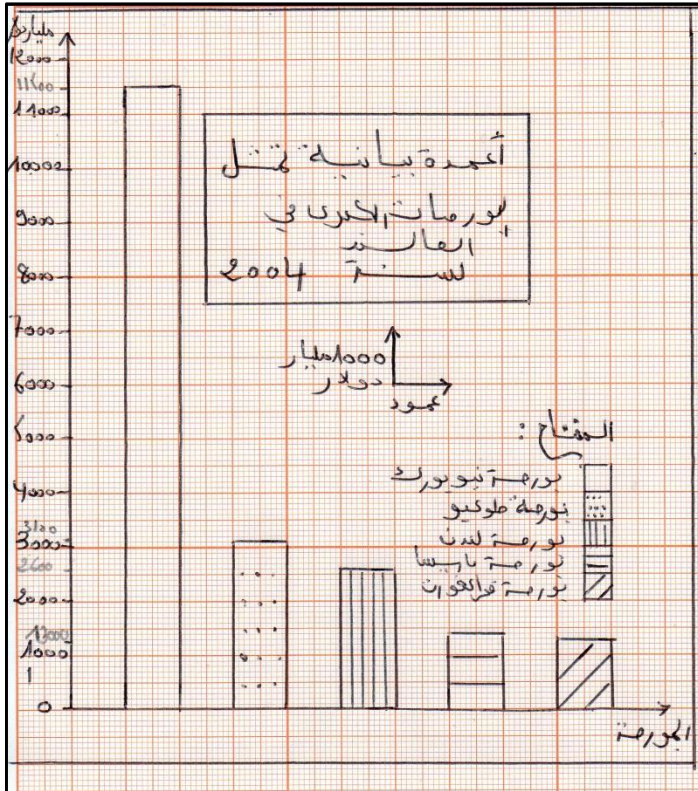 مليار $
12000
11500
11000
10000
9000
8000
7000
6000
5000
4000
3100
3000
2600
2000
1000
1
0
أعمدة بيانية تمثل
البورصات الكبرى في
العالم
لسنة 2004
1000 مليار
دولار
عمود
المفتاح :
بورصة نيويورك
بورصة طوكيو
بورصة لندن
بورصة باريس
بورصة فرانكفورت
البورصة